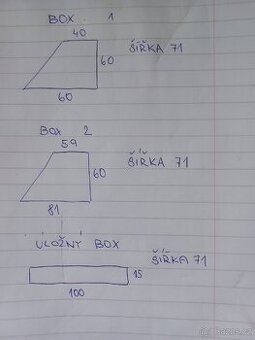 BOX 1
40
ŠÍŘKA 71
60
60
BOX 2
59
ŠÍŘKA 71
60
81
ÚLOŽNÝ BOX
ŠÍŘKA 71
15
100